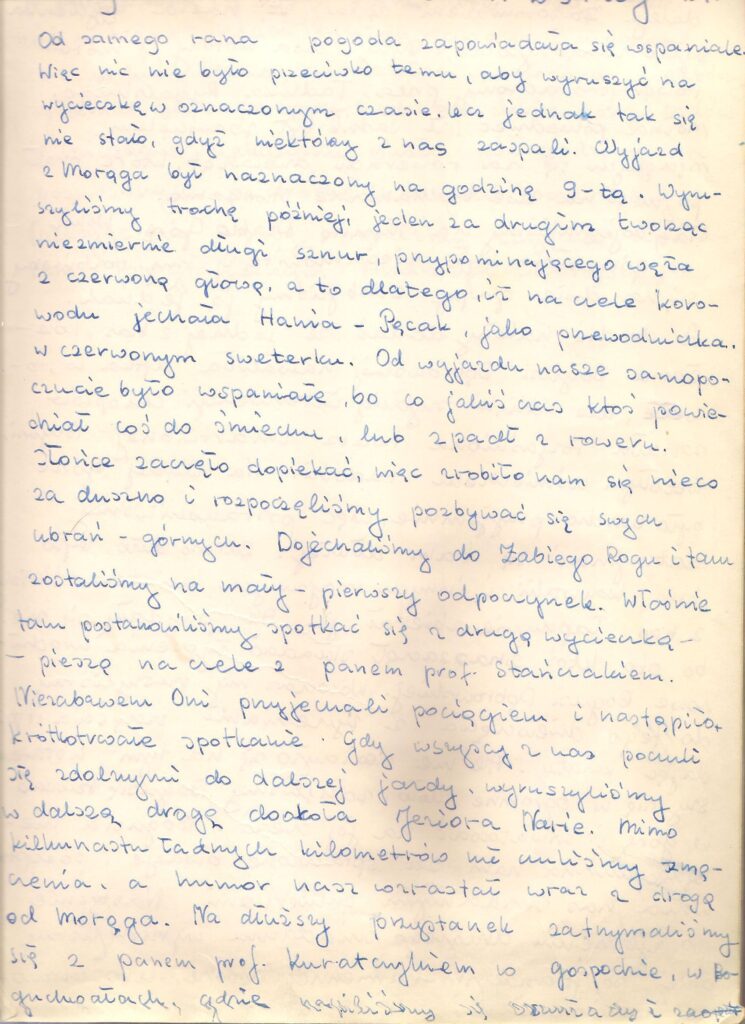 Od samego rana pogoda zapowiadała się wspaniale.
Więc nic nie było przeciwko temu, aby wyruszyć na
wycieczkę w oznaczonym czasie. Lecz jednak tak się
nie stało, gdyż niektórzy z nas zaspali. Wyjazd
z Morąga był naznaczony na godzinę 9-tą. Wyru-
szyliśmy trochę później, jeden za drugim tworząc
niezmiernie długi sznur, przypominającego węża
z czerwoną głową, a to dlatego, iż na czele koro-
wodu jechała Hania - Pęcak, jako przewodniczka.
w czerwonym sweterku. Od wyjazdu nasze samopo-
czucie było wspaniałe, bo co jakiś czas ktoś powie-
dział coś do śmiechu, lub spadł z roweru.
Słońce zaczęło dopiekać, więc zrobiło nam się nieco
za duszno i rozpoczęliśmy pozbywać się swych
ubrań - górnych. Dojechaliśmy do Żabiego Rogu i tam
zostaliśmy na mały - pierwszy odpoczynek. Właśnie
tam postanowiliśmy spotkać się z drugą wycieczką -
- pieszą na czele z panem prof. Stańczakiem.
Niezabawem Oni przyjechali pociągiem i nastąpiło
krótkotrwałe spotkanie. Gdy wszyscy z nas poczuli
się zdolnymi do dalszej jazdy, wyruszyliśmy
w dalszą drogę dookoła Jeziora Narie. Mimo
kilkunastu ładnych kilometrów nie czuliśmy zmę-
czenia, a humor nasz wzrastał wraz z drogą
od Morąga. Na dłuższy przystanek zatrzymaliśmy
się z panem prof. Kuratczykiem w gospodzie, w Bo-
guchwałach, gdzie napiliśmy się oranżady i